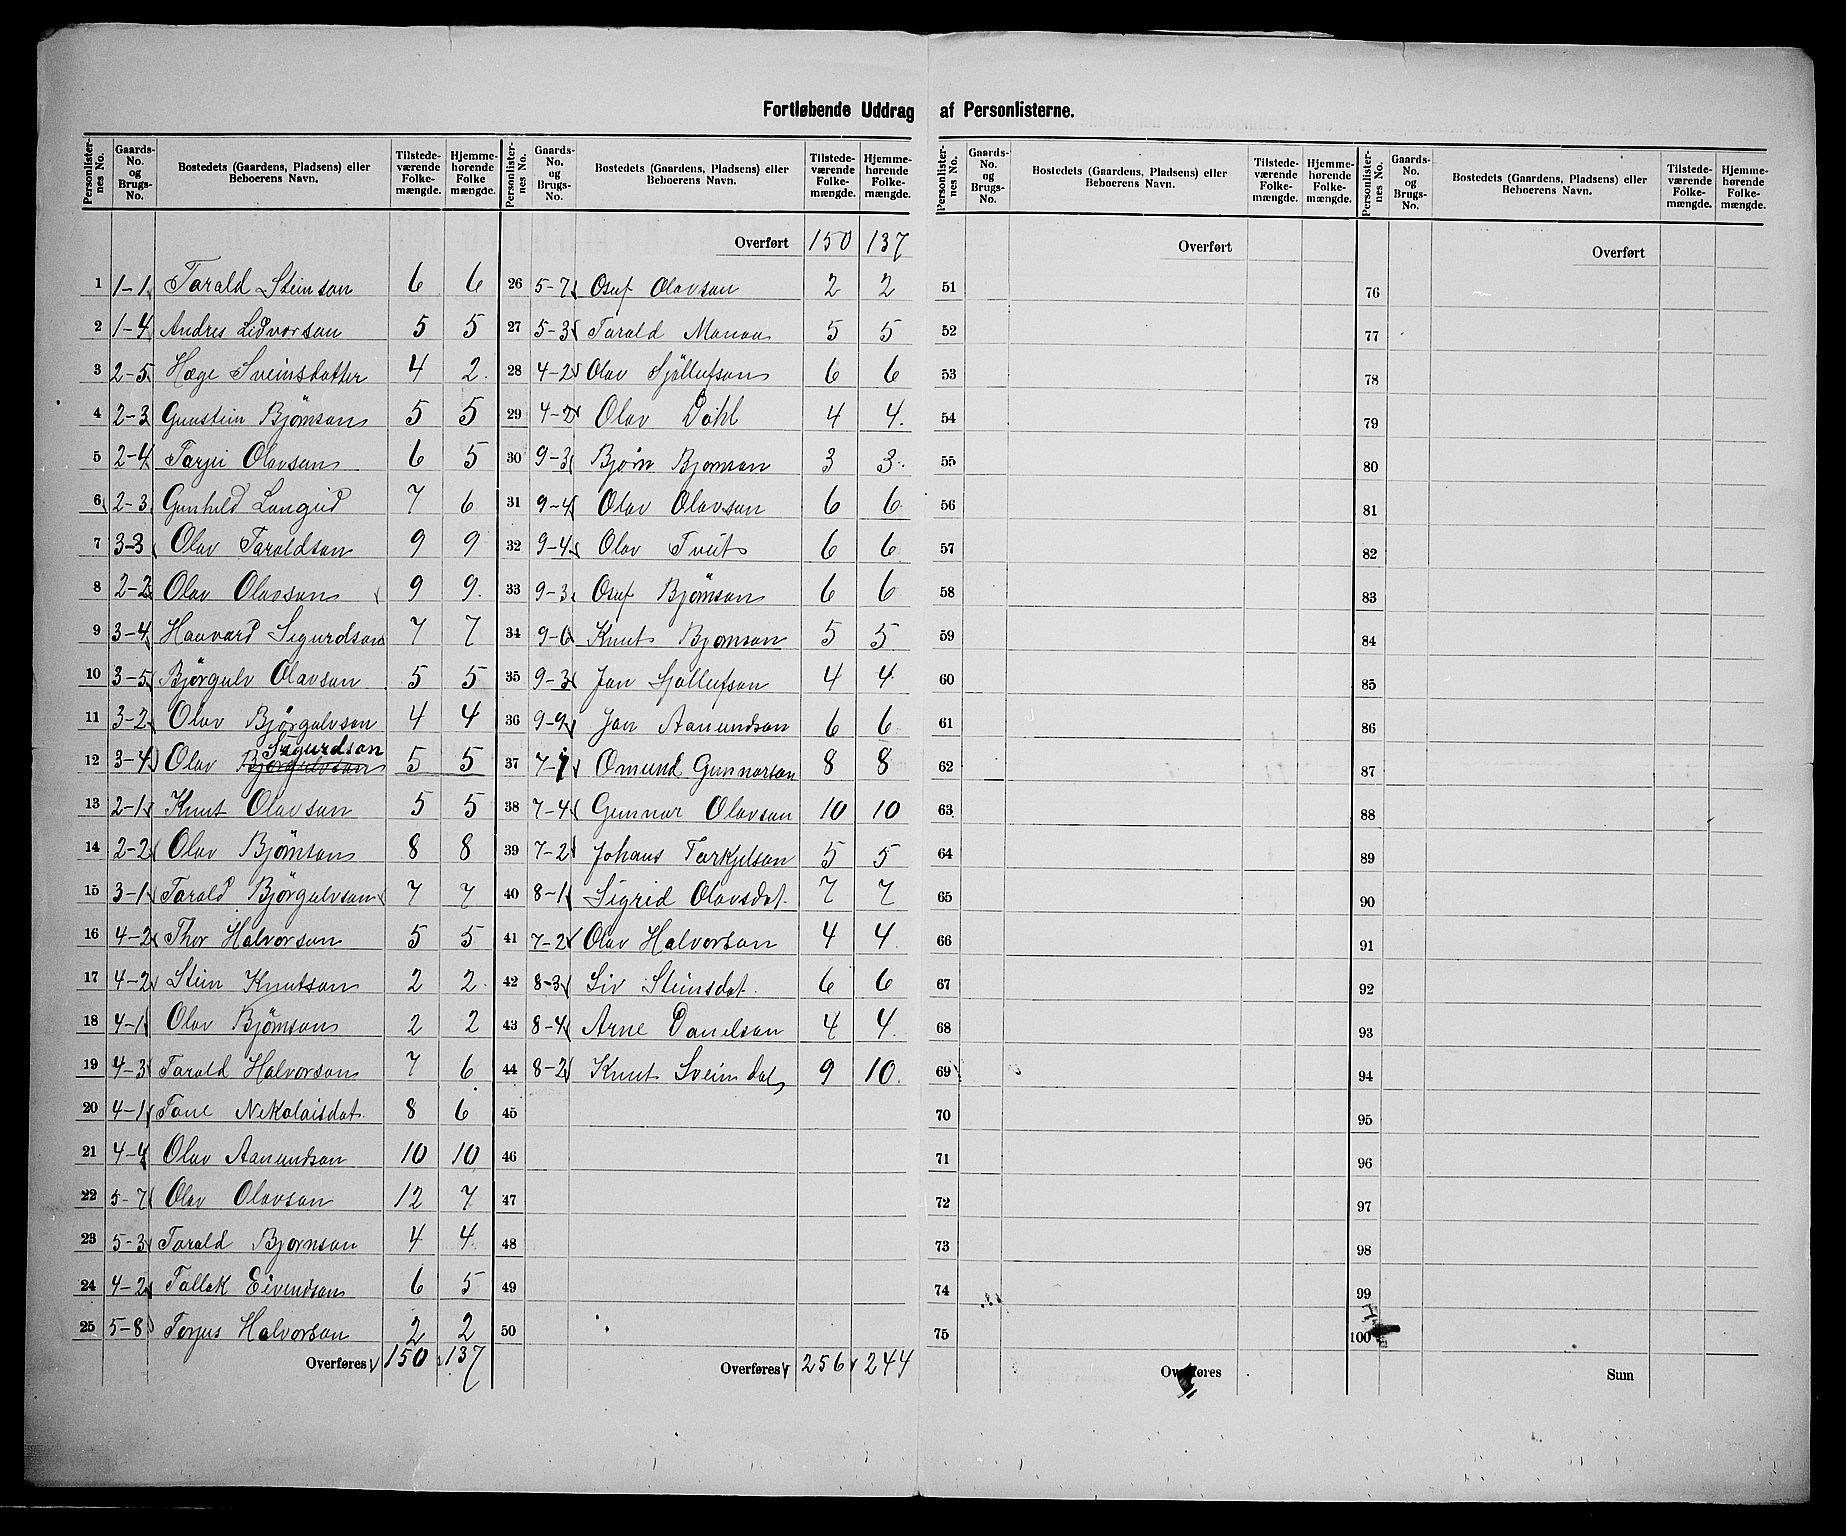 Fortløbende Uddrag af Personlisterne.
Personlisternes No. | Gaards-No. og Brugs-No. | Bostedets (Gaardens, Pladsens) eller Beboerens Navn. | Tilstedeværende Folkemængde. | Hjemmehørende Folkemængde.
1 | 1-1 | Tarald Steinson | 6 | 6
2 | 1-4 | Andres Lidvorson | 5 | 5
3 | 2-5 | Hæge Sveinsdatter | 4 | 2
4 | 2-3 | Gunstein Bjørnson | 5 | 5
5 | 2-4 | Tarjei Olavson | 6 | 5
6 | 2-3 | Gunhild Langeid | 7 | 6
7 | 3-3 | Olav Taraldson | 9 | 9
8 | 2-2 | Olav Olavson | 9 | 9
9 | 3-4 | Haavard Sigurdson | 7 | 7
10 | 3-5 | Bjørgulv Olavson | 5 | 5
11 | 3-2 | Olav Bjørgulvson | 4 | 4
12 | 3-4 | Olav Bjørgulvson Sigurdson | 5 | 5
13 | 2-1 | Knut Olavson | 5 | 5
14 | 2-2 | Olav Bjørnson | 8 | 8
15 | 3-1 | Tarald Bjørgulvson | 7 | 7
16 | 4-2 | Thor Halvorson | 5 | 5
17 | 4-2 | Stein Knutson | 2 | 2
18 | 4-1 | Olav Bjørnson | 2 | 2
19 | 4-3 | Tarald Halvorson | 7 | 6
20 | 4-1 | Tone Nikolaisdat. | 8 | 6
21 | 4-4 | Olav Aanundson | 10 | 10
22 | 5-7 | Olav Olavson | 12 | 7
23 | 5-3 | Tarald Bjørnson | 4 | 4
24 | 4-2 | Tallak Eivindson | 6 | 5
25 | 5-8 | Torjus Halvorson | 2 | 2
Overføres | 150 | 137
Personlisternes No. | Gaards-No. og Brugs-No. | Bostedets (Gaardens, Pladsens) eller Beboerens Navn. | Tilstedeværende Folkemængde. | Hjemmehørende Folkemængde.
Overført | 150 | 137
26 | 5-7 | Osuf Olavson | 2 | 2
27 | 5-3 | Tarald | 5 | 5
28 | 4-2 | Olav Gjøllufson | 6 | 6
29 | 4-2 | Olav Dahl | 4 | 4
30 | 9-3 | Bjørn Bjørnson | 3 | 3
31 | 9-4 | Olav Olavson | 6 | 6
32 | 9-4 | Olav Tveit | 6 | 6
33 | 9-3 | Osuf Bjørnson | 6 | 6
34 | 9-6 | Knut Bjørnson | 5 | 5
35 | 9-3 | Jon | 4 | 4
36 | 9-9 | Jon Aanundson | 6 | 6
37 | 7-1 | Omund Gunnarson | 8 | 8
38 | 7-4 | Gunnar Olavson | 10 | 10
39 | 7-2 | Johans Tarkjelson | 5 | 5
40 | 8-1 | Sigrid Olavsdat. | 7 | 7
41 | 7-2 | Olav Halvorson | 4 | 4
42 | 8-3 | Liv Steinsdat. | 6 | 6
43 | 8-4 | Arne Danelson | 4 | 4
44 | 8-2 | Knut Sveindal | 9 | 10
45
46
47
48
49
50
Overføres | 256 | 244
Personlisternes No. | Gaards-No. og Brugs-No. | Bostedets (Gaardens, Pladsens) eller Beboerens Navn. | Tilstedeværende Folkemængde. | Hjemmehørende Folkemængde.
Overført
51
52
53
54
55
56
57
58
59
60
61
62
63
64
65
66
67
68
69
70
71
72
73
74
75
Overføres
Personlisternes No. | Gaards-No. og Brugs-No. | Bostedets (Gaardens, Pladsens) eller Beboerens Navn. | Tilstedeværende Folkemængde. | Hjemmehørende Folkemængde.
Overført
76
77
78
79
80
81
82
83
84
85
86
87
88
89
90
91
92
93
94
95
96
97
98
99
100
Sum